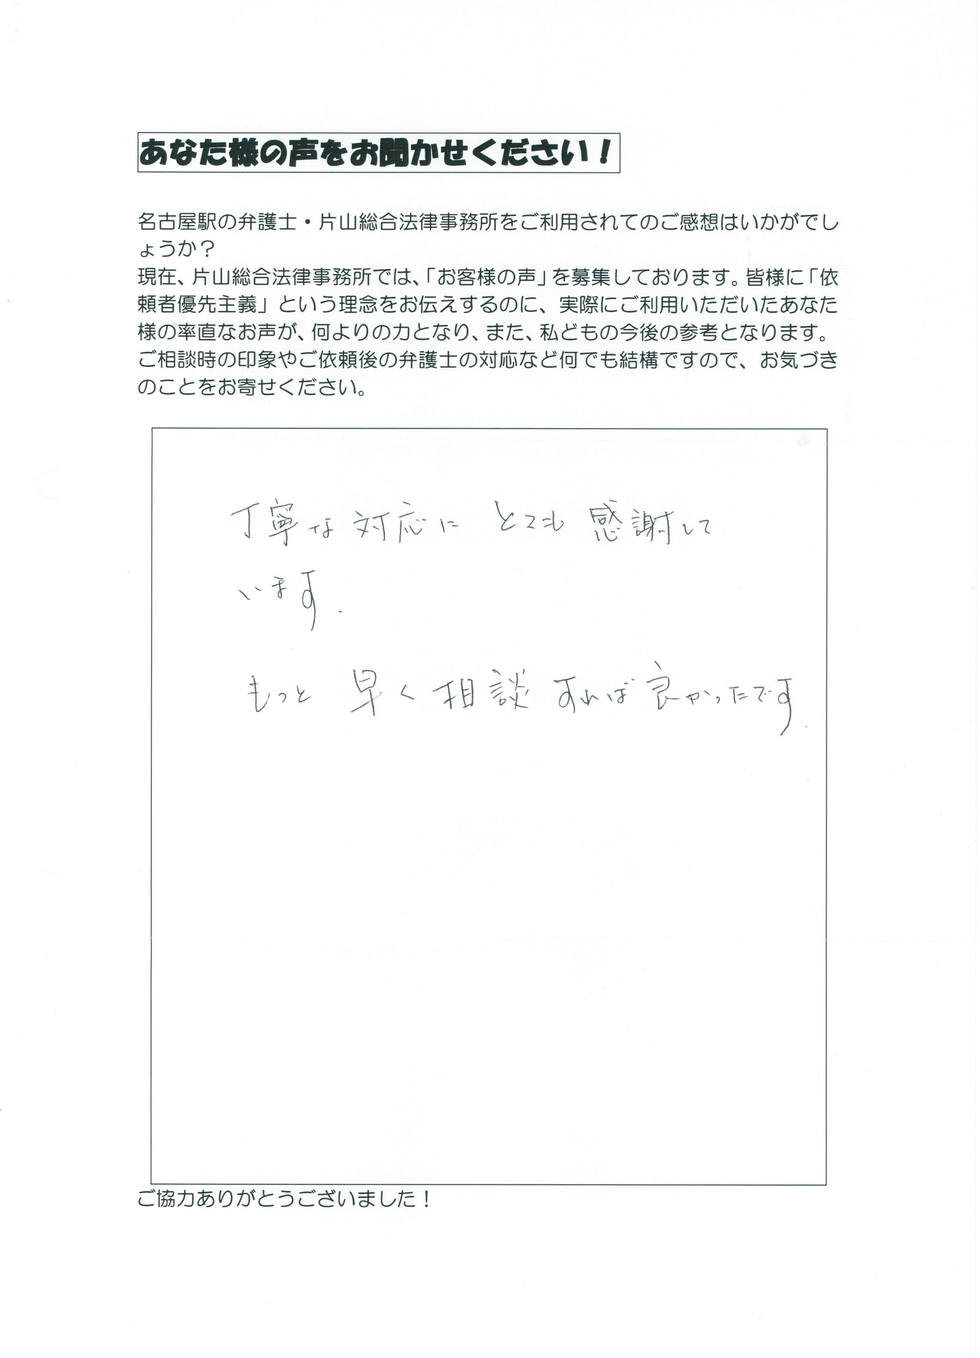 あなた様の声をお聞かせください！
名古屋駅の弁護士・片山総合法律事務所をご利用されてのご感想はいかがでし
ょうか？
現在、片山総合法律事務所では、「お客様の声」を募集しております。皆様に「依
頼者優先主義」という理念をお伝えするのに、実際にご利用いただいたあなた
様の率直なお声が、何よりの力となり、また、私どもの今後の参考となります。
ご相談時の印象やご依頼後の弁護士の対応など何でも結構ですので、お気づき
のことをお寄せください。
丁寧な対応に とても 感謝して
います.
もっと 早く 相談 すれば 良かったです.
ご協力ありがとうございました！